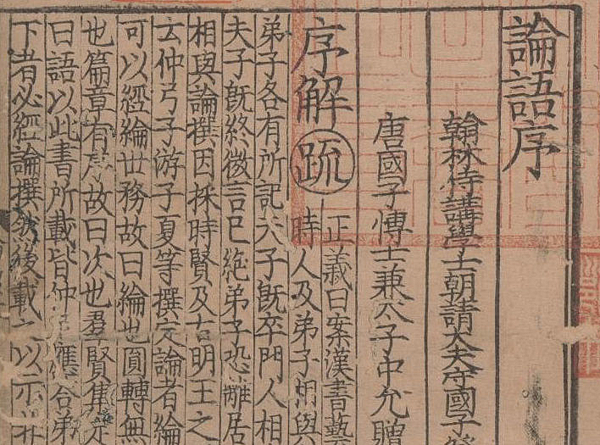 論語序
翰林侍講學士朝請大夫守國子
唐國子博士兼太子中允贈
序解疏
正義曰案漢書藝
時人及弟子相與
弟子各有所記夫子既卒門人相
夫子既終微言已絕弟子恐離居
相與論撰因採時賢及古明王之
云仲弓子游子夏等撰定論者綸
可以經綸世務故曰綸也圓轉無
也篇章有序故曰次也羣賢集定
曰語以此書所載皆仲尼應答弟
下者必經論撰然後載之以示非